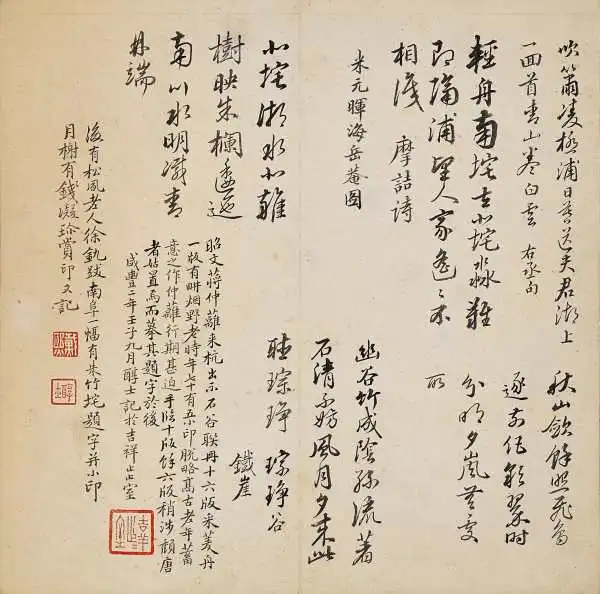 吹簫凌極浦日暮送夫君湖上
一回首青山卷白雲 右丞句
輕舟南垞去北垞淼難
即隔浦望人家遙遙不
相識 摩詰詩
米元暉海岳菴圖
北垞湖水北雜
樹映朱欄逶迤
南川水明滅青
林端
秋山斂餘照飛鳥
逐前侶彩翠時
分明夕嵐無處
所
幽谷竹成陰絲流著
石清不妨風月夕來此
聽琮琤 琮琤谷
鐵崖
昭文蔣仲蘺來杭出示石谷聯冊十六版末葉冊
一版有畊烟野老時年七十有五小印脫略高古老年蓄
意之作仲蘺行期甚迫手臨十版餘六版稍涉頹唐
者姑置焉而摹其題字於後
咸豐二年壬子九月醇士記於吉祥止止室
吉祥止止室
後有松風老人徐釚跋南阜一幅有朱竹垞題字并小印
月榭有錢凝珍賞印又記
戴熙
醇士